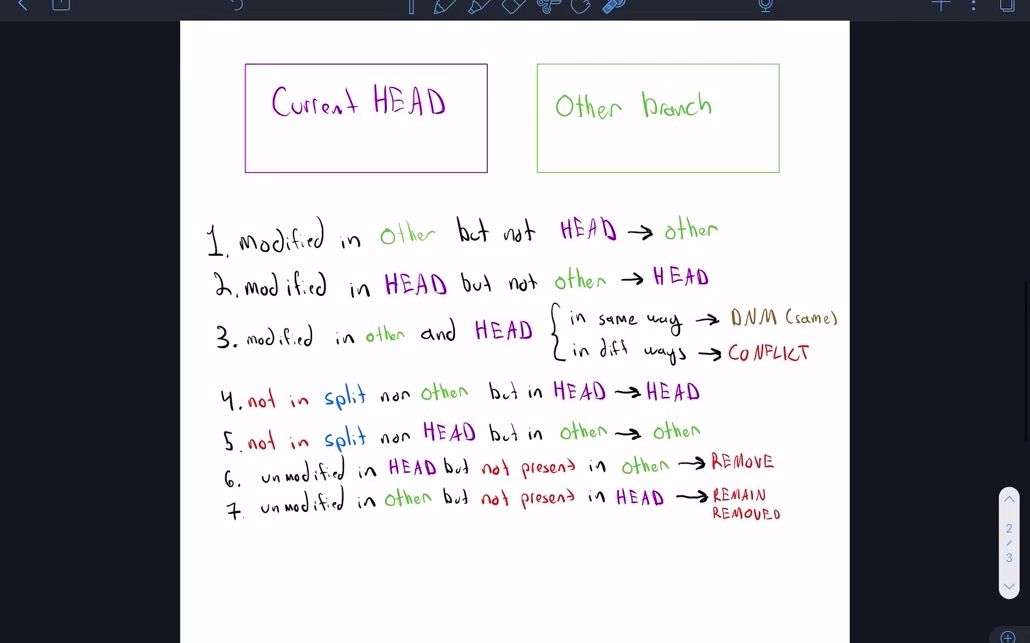 Current HEAD
Other branch
1. modified in other but not HEAD → other
2. modified in HEAD but not other → HEAD
3. modified in other and HEAD { in same way → DNM (same)
in diff ways → CONFLICT
4. not in split nor other but in HEAD → HEAD
5. not in split nor HEAD but in other → other
6. unmodified in HEAD but not present in other → REMOVE
7. unmodified in other but not present in HEAD → REMAIN
REMOVED
2
/
3